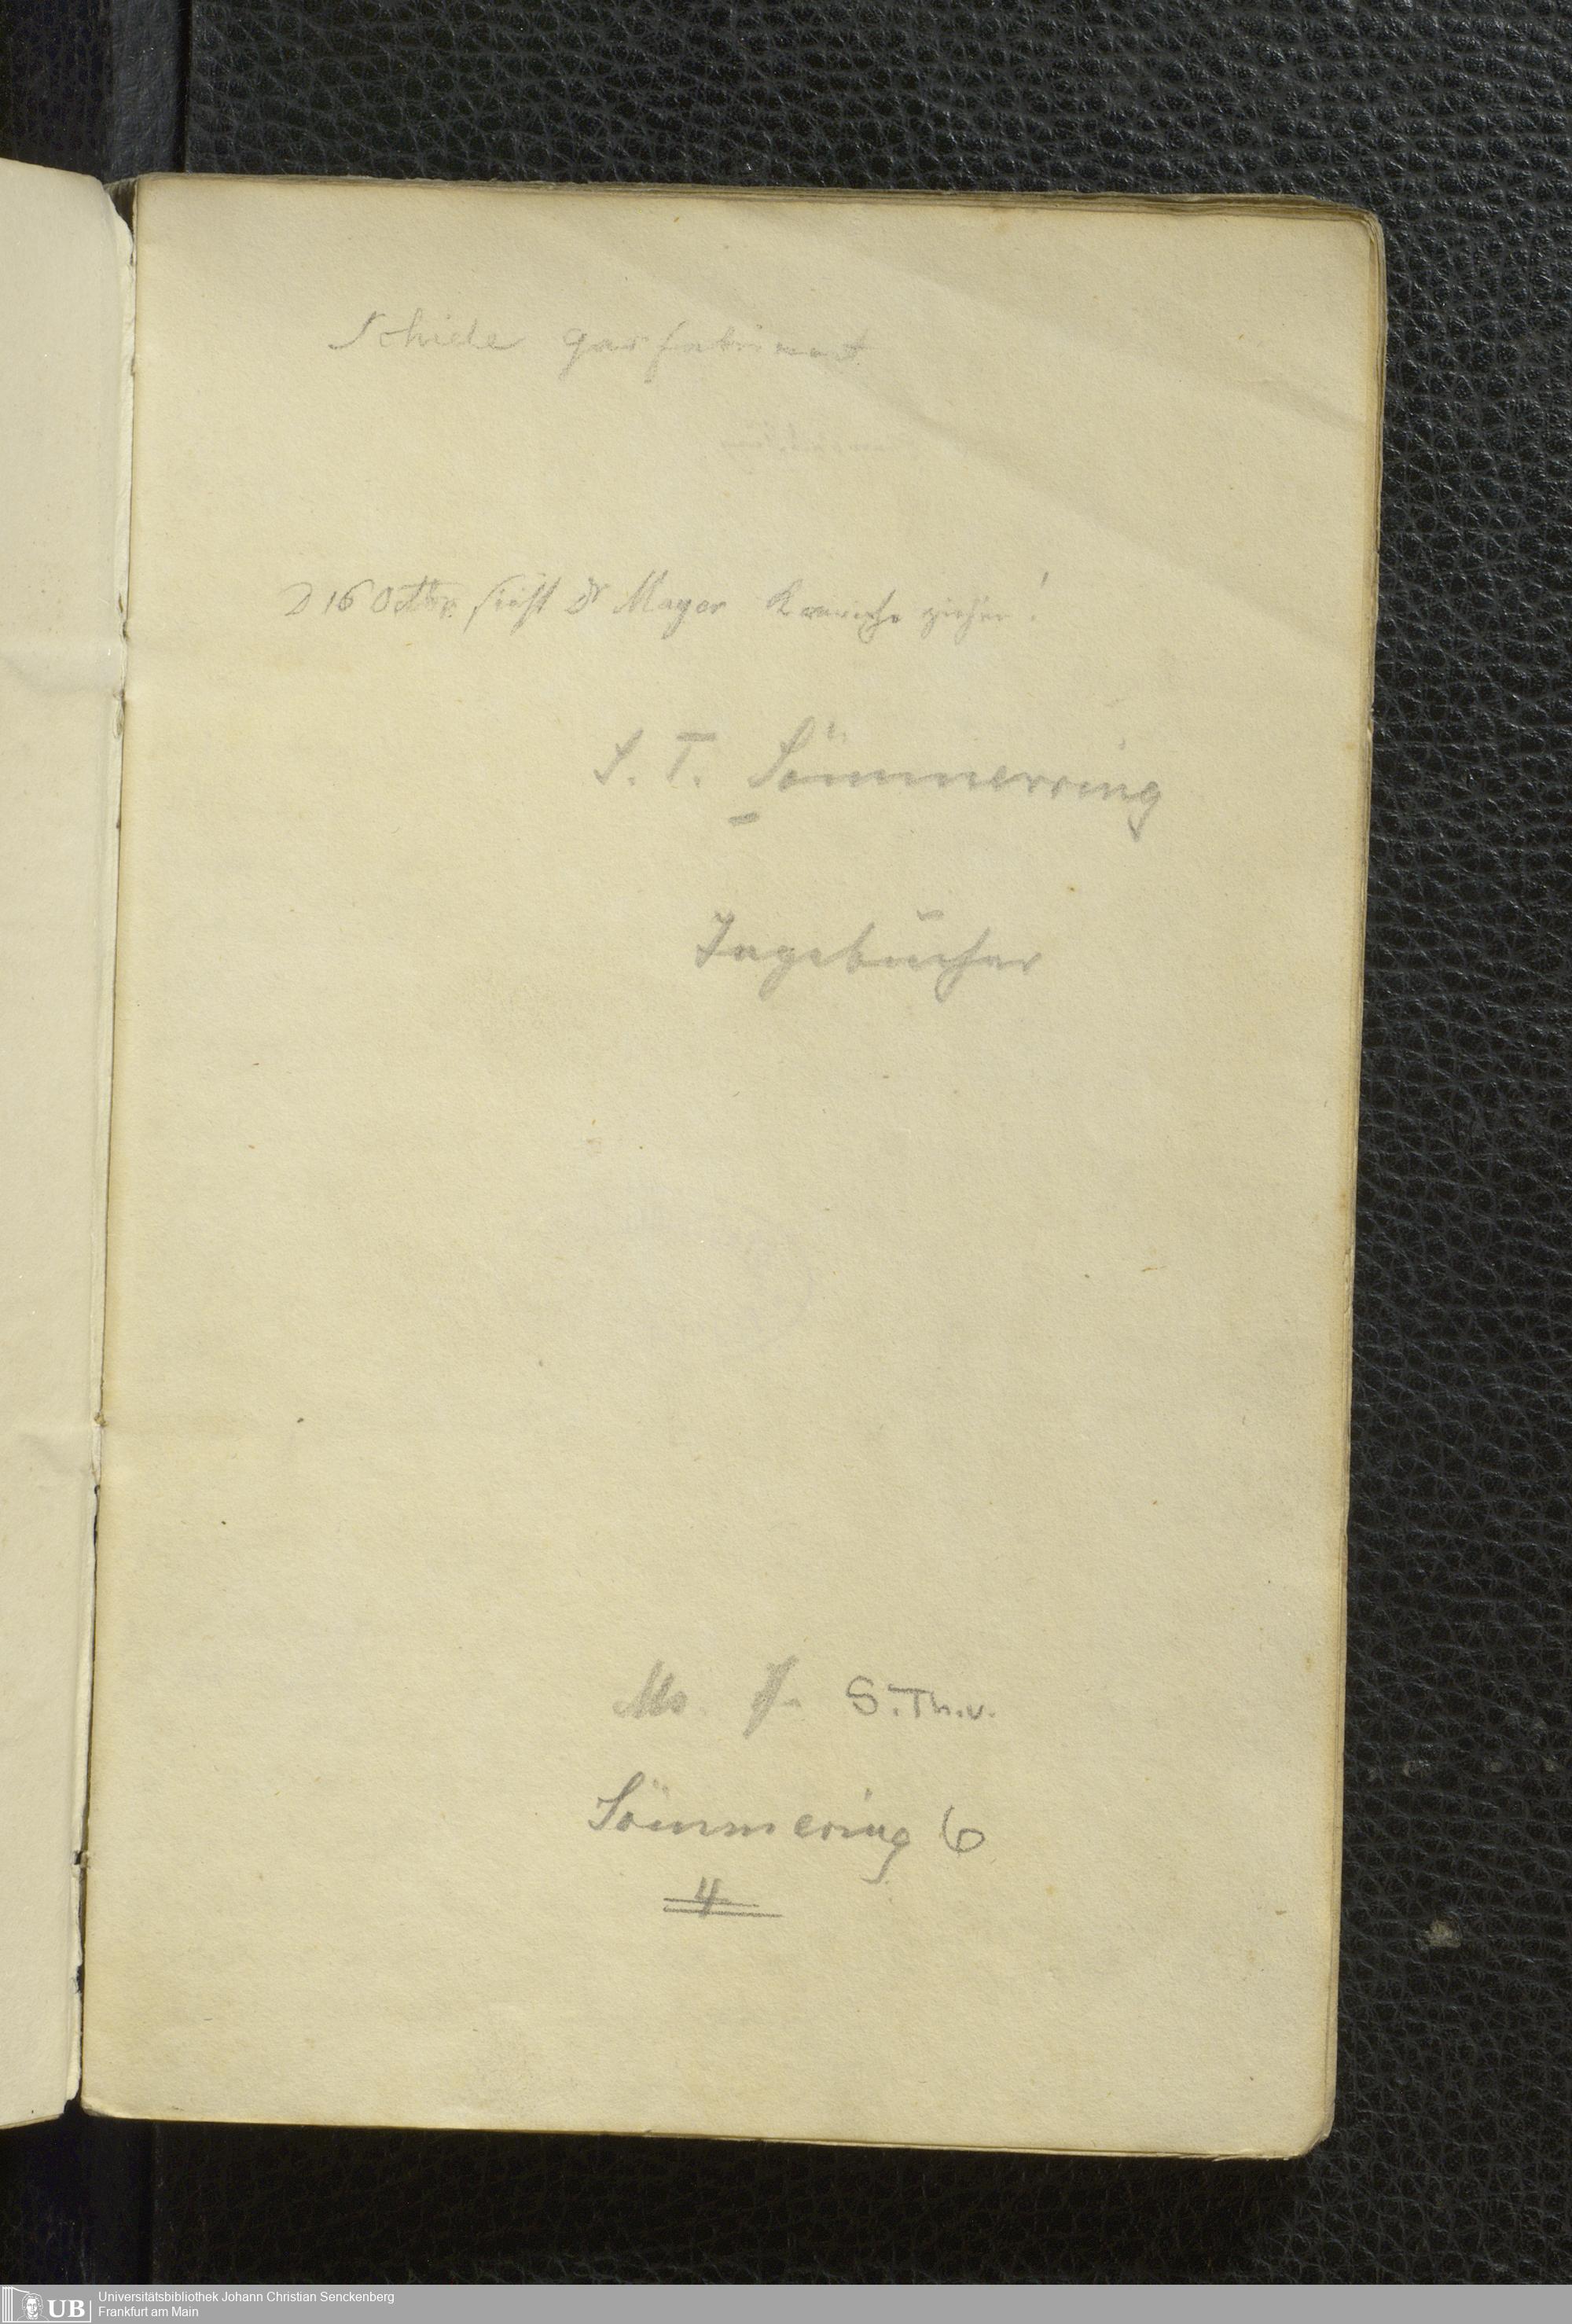 Schiele Gasfabrikant
D 16 Octbr. sieht Dr Mayer Kraniche ziehen!
S. T. Sömmerring
Tagebücher
Ms. ff. S. Th. v.
Sömmering 6
4
UB Universitätsbibliothek Johann Christian Senckenberg
Frankfurt am Main